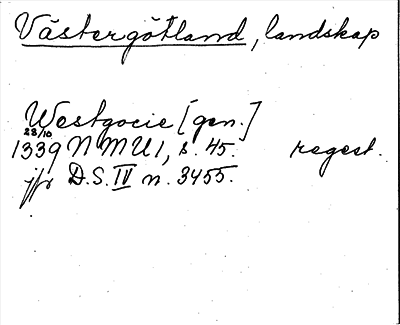 Västergötland, landskap
Westgocie [gen.]
28/10
1339 NMU1, s. 45. regest.
jfr D.S. IV n. 3455.